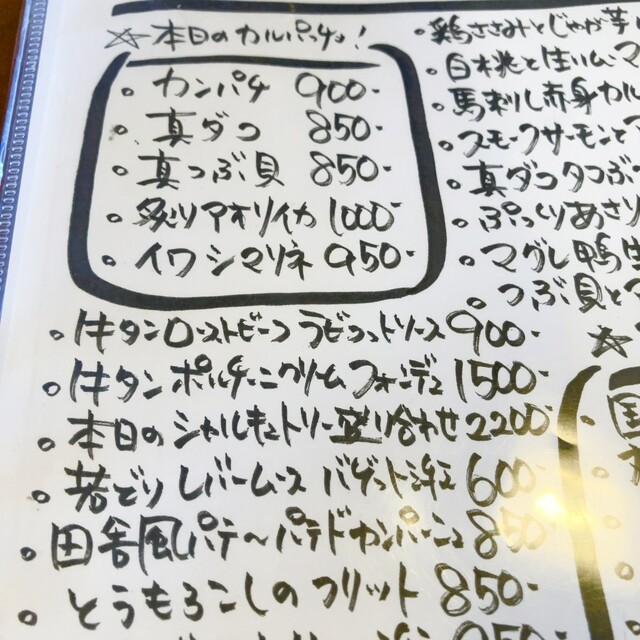 ☆本日のカルパッチョ!
・カンパチ 900-
・真ダコ 850-
・真つぶ貝 850-
・炙りアオリイカ 1000-
・イワシマリネ 950-
・牛タンローストビーフ ラビゴットソース 900-
・牛タン ポルチーニクリームフォンデュ 1500-
・本日のシャルキュトリー盛り合わせ 2200-
・若どりレバームース バゲット添え 600-
・田舎風パテ〜パテドカンパーニュ 850
・とうもろこしのフリット 850-
・鶏ささみとじゃが芋
・白桃と生ハム・マ
・馬刺し赤身カル
・スモークサーモンと
・真ダコタつぶ
・ぷっくりあさり
・マグレ鴨
・つぶ貝と
☆